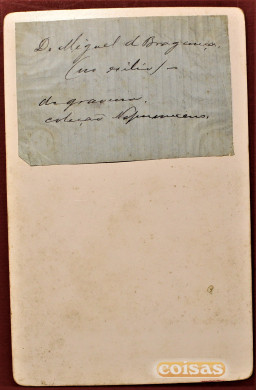 D. Miguel d Bragança.
(no exilio) –
da gravura.
coleçao
coisas